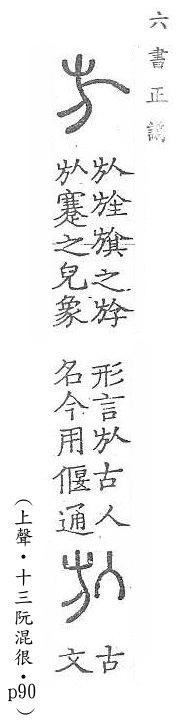 六書正譌
㫃
㫃旌旗之斿
㫃蹇之皃象
形言㫃古人
名今用偃通
㫃
古
文
(上聲·十三阮混很·p90)